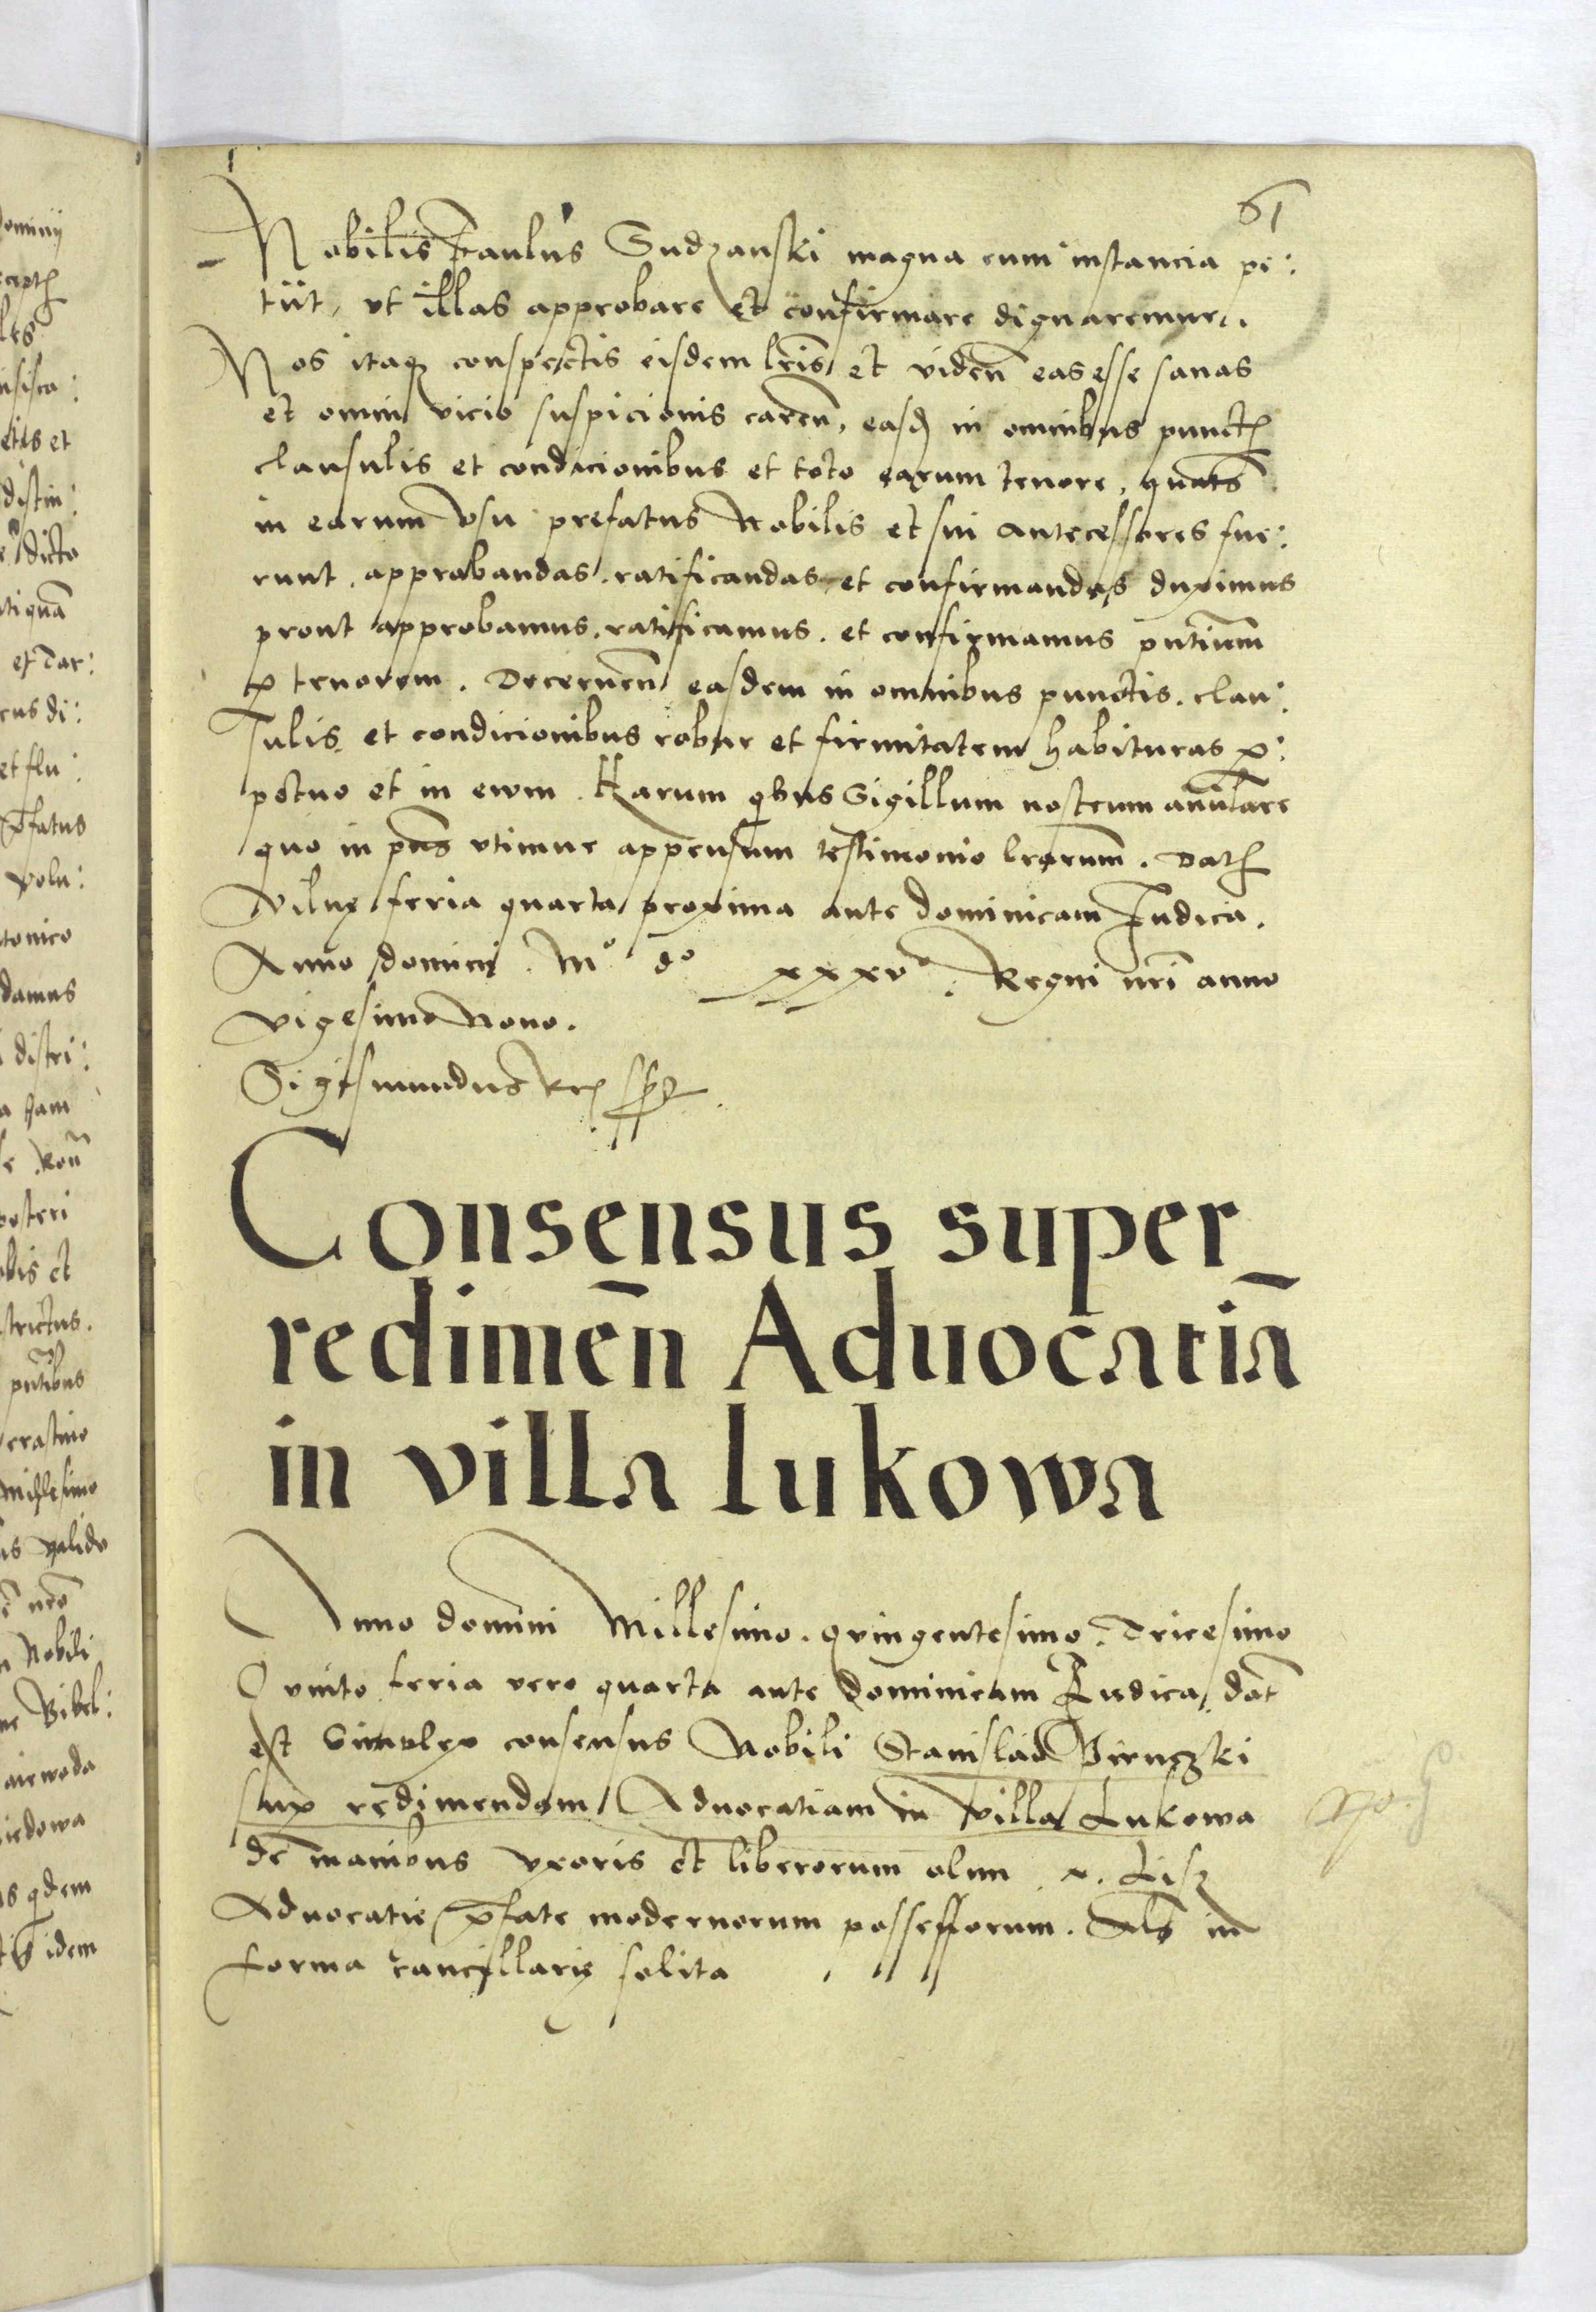 61
Nobilis Paulus Sudzanski magna cum instancia pe:
tiit, vt illas approbare et confirmare dignaremur.
Nos itaq conspectis eisdem lris et viden eas esse sanas
et omni vicio suspicionis caren, easd in omnibus punct
clausulis et condicionibus et toto earum tenore, quats
in earum vsu prefatus Nobilis et sui antecessores fue:
runt, approbandas, ratificandas et confirmandas duximus
prout approbamus, ratificamus, et confirmamus pntium
p tenorem. Decernen easdem in omnibus punctis, clau:
sulis et condicionibus robur et firmitatem habituras p:
petuo et in ewm. Harum qbus Sigillum nostrum annulare
quo in pns vtimur appensum testimonio lrarum. Dat
Vilnę feria quarta proxima ante dominicam Judica.
Anno domini M° d° xxxv° Regni nri anno
vigesimo Nono.
Sigismundus Rex
Consensus super
redimen Aduocatia
in villa lukowa
Anno domini Millesimo, quingentesimo, Tricesimo
Quinto feria vero quarta ante Dominicam Judica, dat
est Simplex consensus Nobili Stanislao
sup redimendam Aduocatiam in villa Lukowa
de manibus vxoris et liberorum olim n. Lisz
Aduocatie pfate modernorum possessorum. Als in
forma cancellarie solita